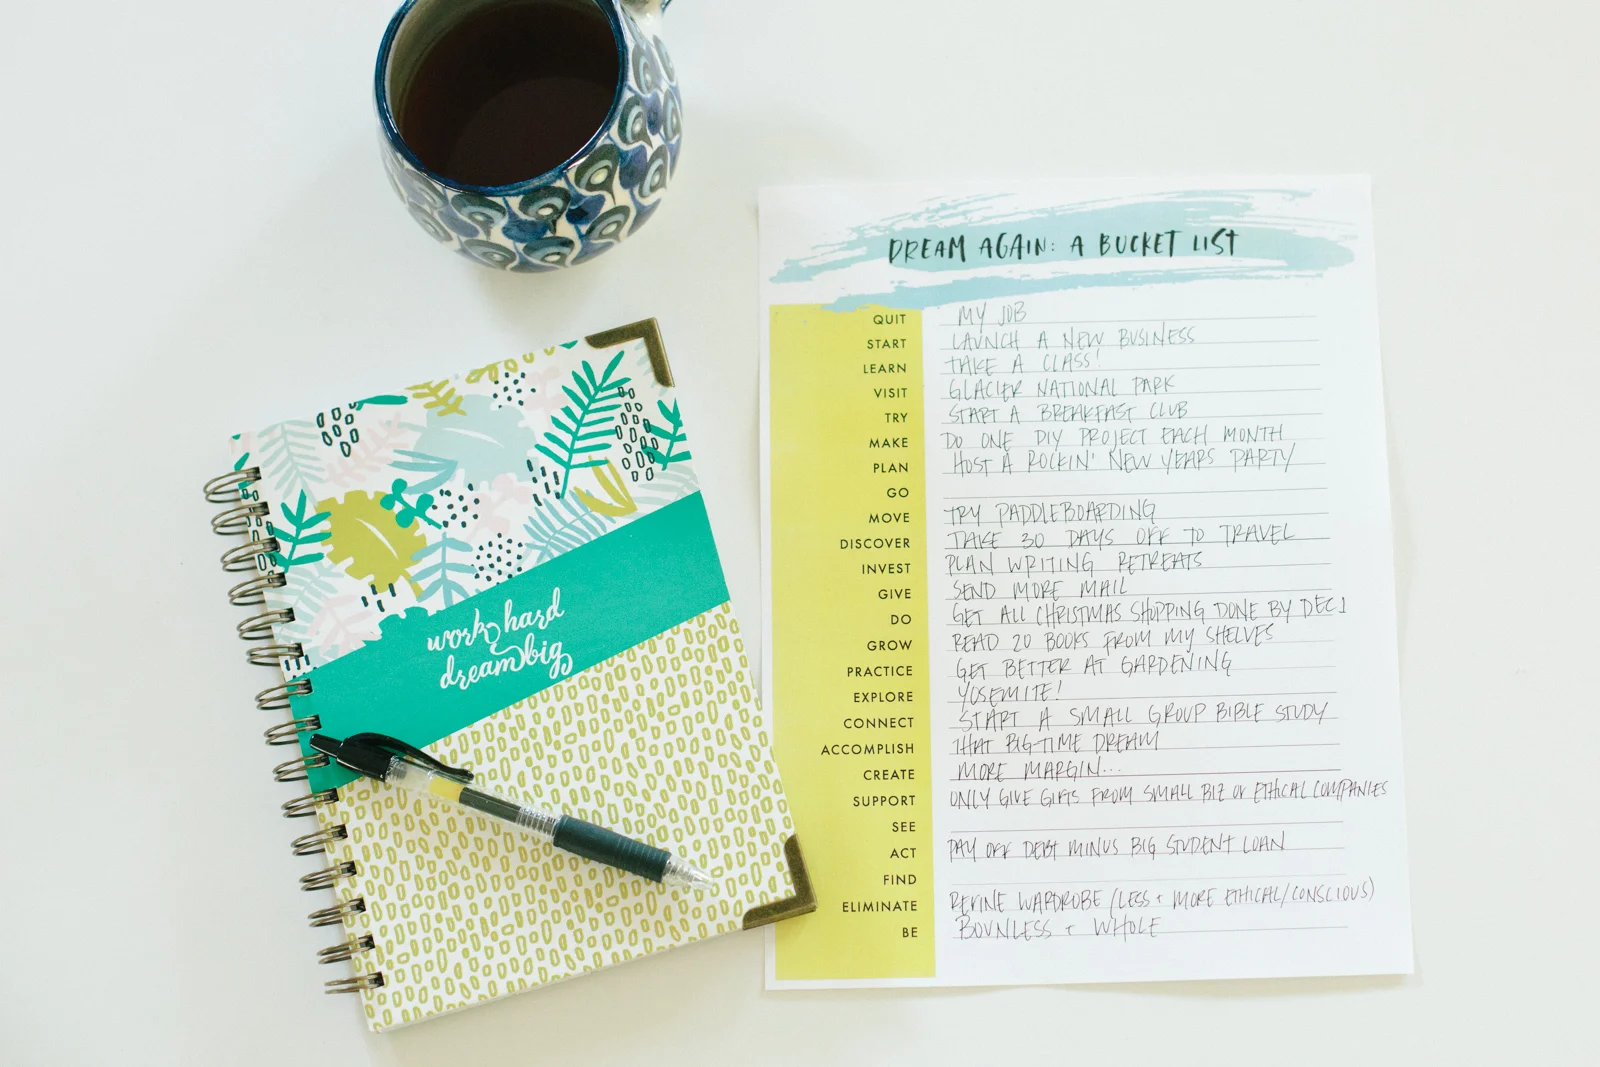 DREAM AGAIN: A BUCKET LIST
QUIT MY JOB
START LAUNCH A NEW BUSINESS
LEARN TAKE A CLASS!
VISIT GLACIER NATIONAL PARK
TRY START A BREAKFAST CLUB
MAKE DO ONE DIY PROJECT EACH MONTH
PLAN HOST A ROCKIN' NEW YEARS PARTY
GO
MOVE TRY PADDLEBOARDING
DISCOVER TAKE 30 DAYS OFF TO TRAVEL
INVEST PLAN WRITING RETREATS
GIVE SEND MORE MAIL
DO GET ALL CHRISTMAS SHOPPING DONE BY DEC 1
GROW READ 20 BOOKS FROM MY SHELVES
PRACTICE GET BETTER AT GARDENING
EXPLORE YOSEMITE!
CONNECT START A SMALL GROUP BIBLE STUDY
ACCOMPLISH THAT BIG-TIME DREAM
CREATE MORE MARGIN...
SUPPORT ONLY GIVE GIFTS FROM SMALL BIZ or ETHICAL COMPANIES
SEE
ACT PAY OFF DEBT MINUS BIG STUDENT LOAN
FIND
ELIMINATE REFINE WARDROBE (LESS + MORE ETHICAL/CONSCIOUS)
BE BOUNLESS + WHOLE
work hard
dream big